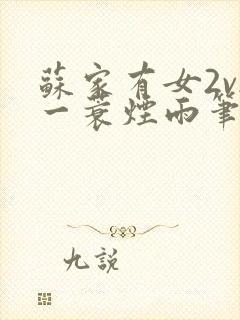 蘇家有女2v
一蓑煙雨筆
九說